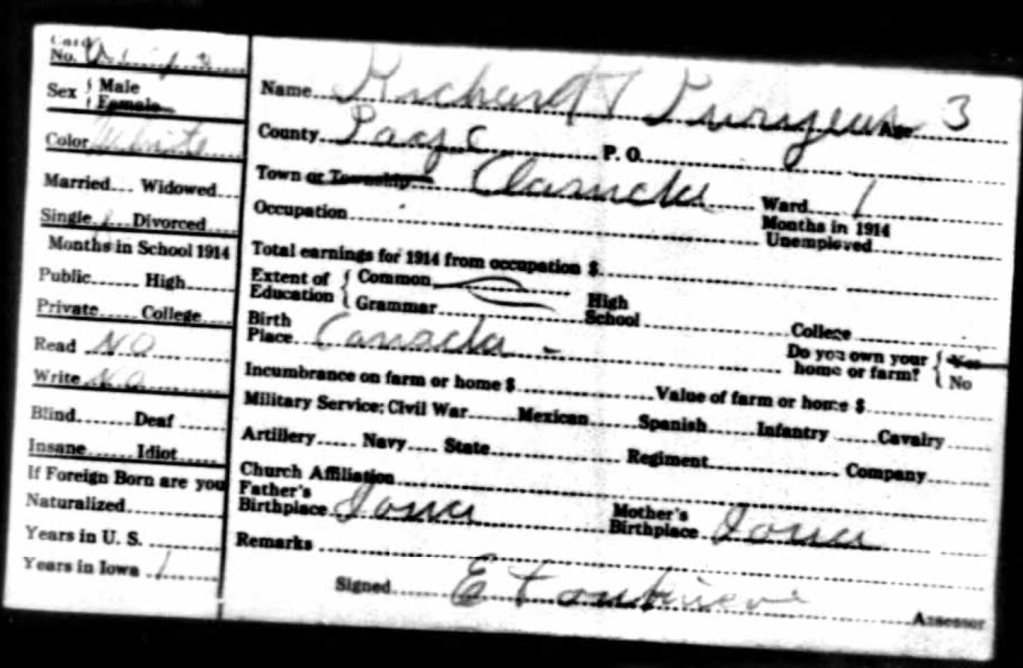 Card
No.
Sex { Male
Female
Color White
Married.... Widowed
Single 1 Divorced
Months in School 1914
Public....... High
Private..... College
Read NO
Write No
Blind....... Deaf
Insane....... Idiot
If Foreign Born are you
Naturalized
Years in U. S.
Years in Iowa 1
Name Richard T Age 3
County Page P. O.
Town or Township Clarinda Ward 1
Occupation Months in 1914 Unemployed
Total earnings for 1914 from occupation $
Extent of Education { Common
Grammar High School College
Birth Place Canada - Do you own your home or farm? { Yes
No
Incumbrance on farm or home $ Value of farm or home $
Military Service: Civil War Mexican Spanish Infantry Cavalry
Artillery Navy State Regiment Company
Church Affiliation
Father's Birthplace Iowa Mother's Birthplace Iowa
Remarks
Signed E T Assessor